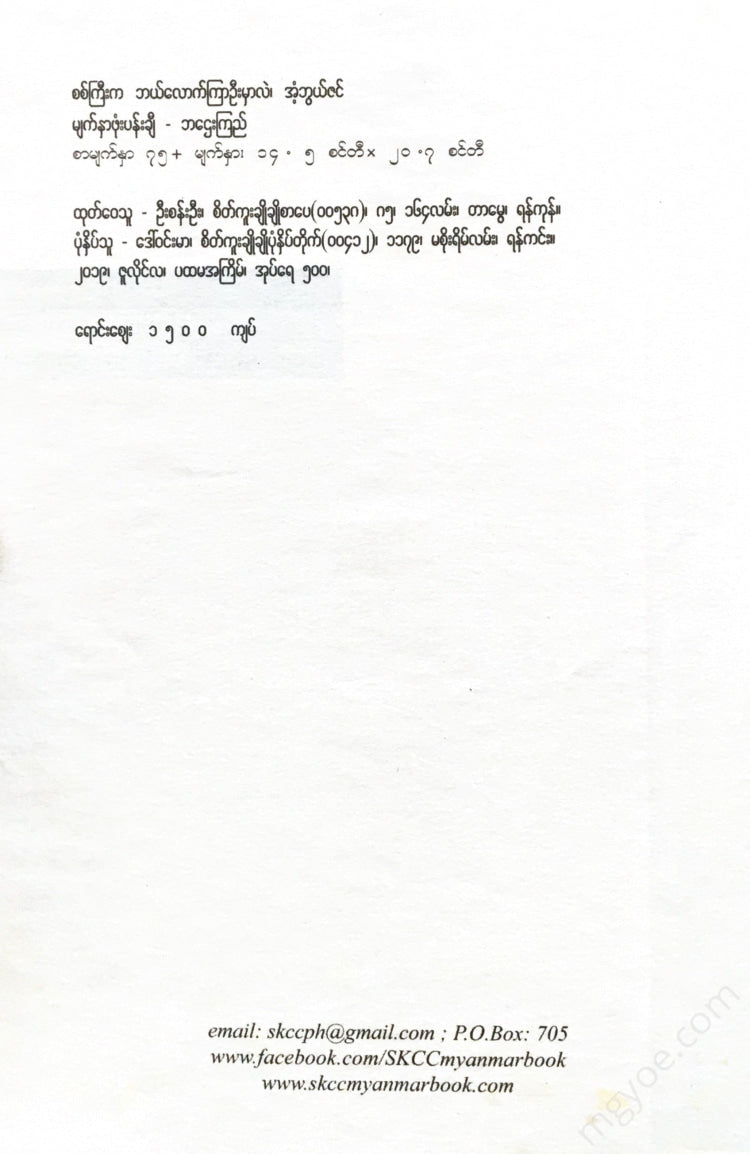 စစ်ကြီးက ဘယ်လောက်ကြာဦးမှာလဲ၊ အံ့ဘွယ်ဇင်
မျက်နှာဖုံးပန်းချီ - ဘဌေးကြည်
စာမျက်နှာ ၇၅+ မျက်နှာ၊ ၁၄.၅ စင်တီ× ၂၀.၇ စင်တီ
ထုတ်ဝေသူ - ဦးစန်းဦး၊ စိတ်ကူးချိုချိုစာပေ(၀၀၅၃၈)၊ ဂ၅၊ ၁၆၄လမ်း၊ တာမွေ၊ ရန်ကုန်။
ပုံနှိပ်သူ - ဒေါ်ဝင်းမာ၊ စိတ်ကူးချိုချိုပုံနှိပ်တိုက်(၀၀၄၁၂)၊ ၁၁၇၉၊ မစိုးရိမ်လမ်း၊ ရန်ကင်း။
၂၀၁၉၊ ဇူလိုင်လ၊ ပထမအကြိမ်၊ အုပ်ရေ ၅၀၀၊
ရောင်းဈေး ၁၅၀၀ ကျပ်
email: skccph@gmail.com ; P.O.Box: 705
www.facebook.com/SKCCmyanmarbook
www.skccmyanmarbook.com
mgyoe.com